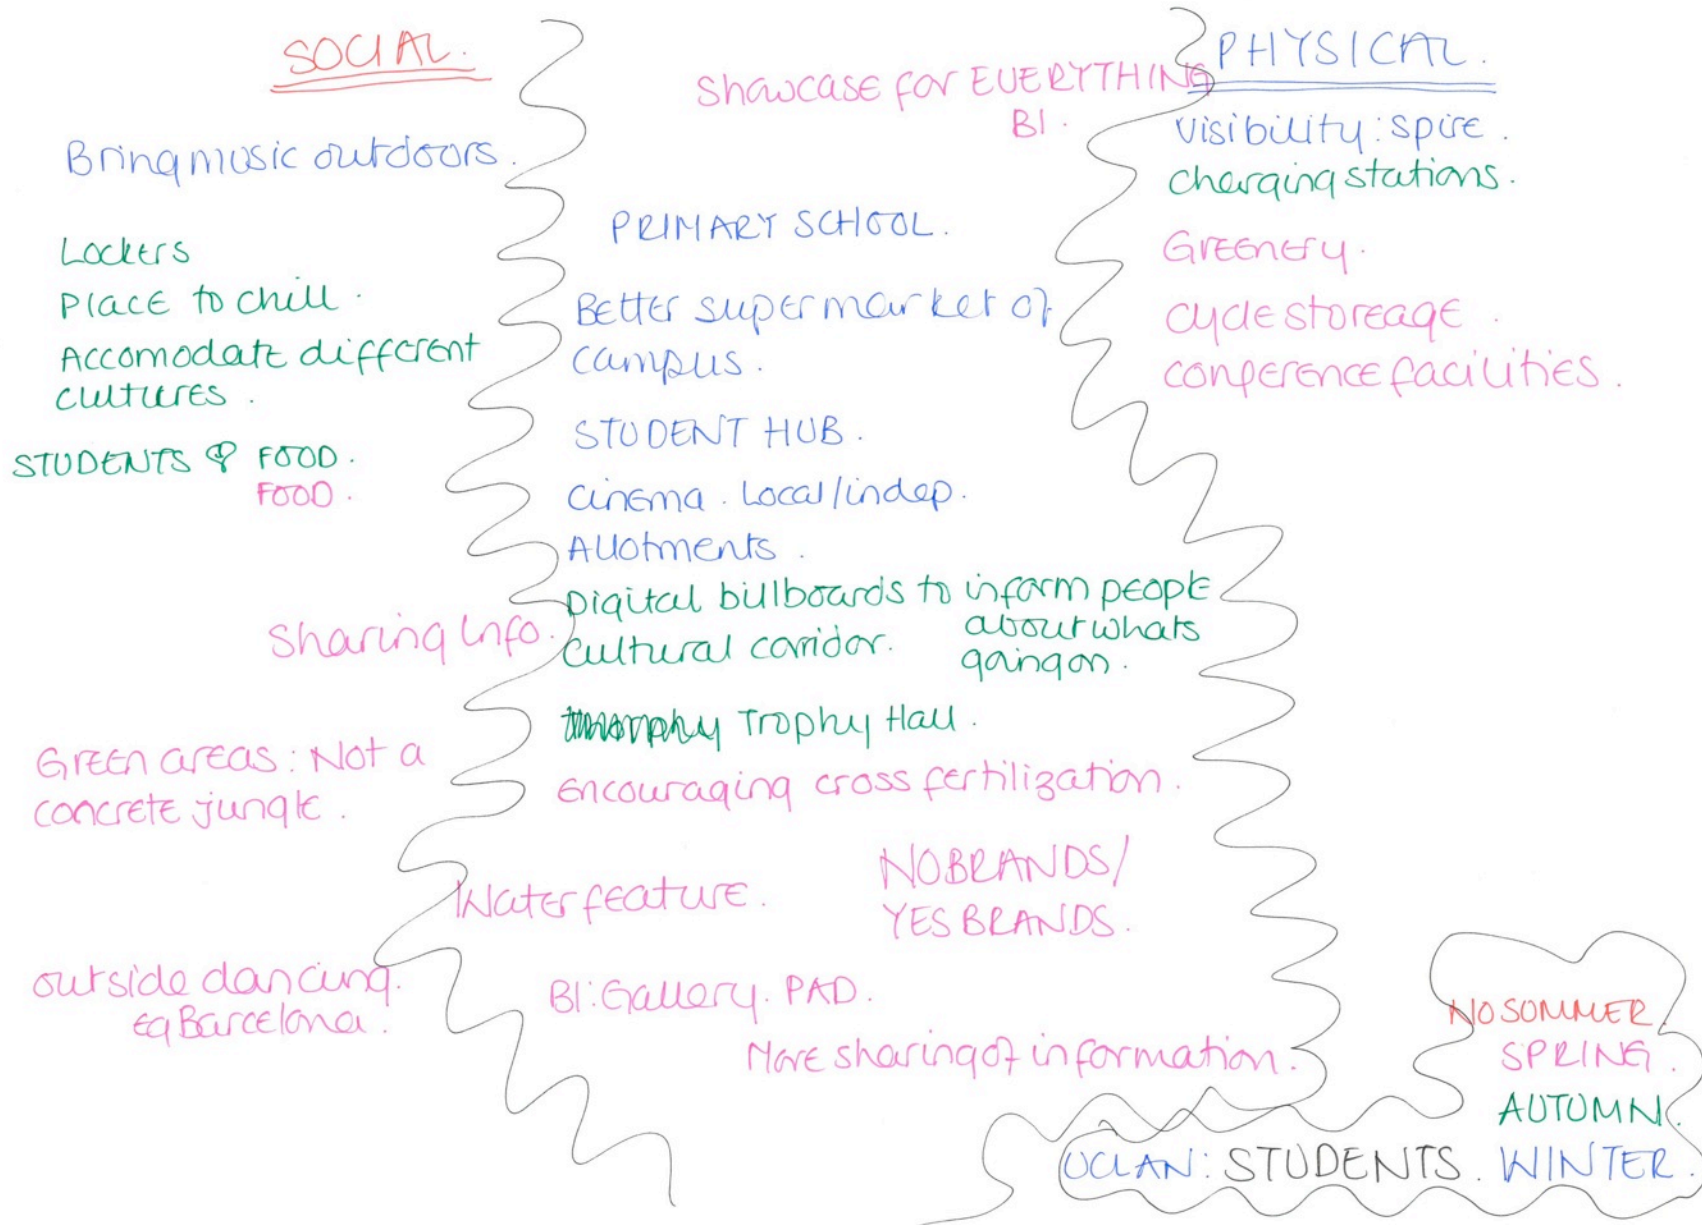 SOCIAL.
Bring music outdoors.
Lockers
Place to chill.
Accomodate different
cultures.
STUDENTS & FOOD.
FOOD.
Sharing Info.
Green areas: Not a
concrete jungle.
outside dancing.
eg Barcelona.
Showcase for EVERYTHING
BI.
PRIMARY SCHOOL.
Better supermarket of
campus.
STUDENT HUB.
Cinema. Local/indep.
Allotments.
Digital billboards to inform people
about whats
going on.
Cultural corridor.
Trophy Hall.
encouraging cross fertilization.
Water feature.
NO BRANDS/
YES BRANDS.
BI: Gallery. PAD.
More sharing of information.
PHYSICAL.
Visibility: spire.
charging stations.
Greenery.
cycle storeage.
conference facilities.
NO SOMMER
SPRING.
AUTUMN.
UCLAN: STUDENTS. WINTER.